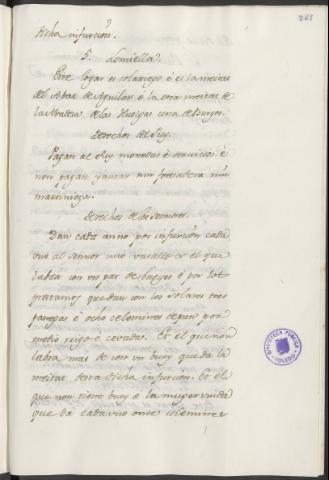 dicha infurcion.
5. Lomiella.
Este logar es solariego é es la meitat
del Abat de Aguilar é la otra meitat de
la Abadesa de las Huelgas cerca de Burgos.
Derechos del Rey.
Pagan al Rey monedas é servicios é
non pagan yantar nin fonsadera nin
martiniega.
Derechos de los Sennores.
Dan cada anno por infurcion cada
uno al Sennor cuio vasallo es el que
labra con un par de bueyes é por lo
que dan con los solares tres
fanegas é ocho celemines de pan por
medio trigo é cevada. Et el que non
labra mas de con un buey que da la
meitat desta dicha infurcion. Et el
que non tiene buey é la muger viuda
que dá cada uno once celemines
BIBLIOTECA PUBLICA
TOLEDO